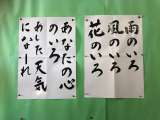 雨のいろ
風のいろ
花のいろ
あなたの心
のいろ
あした天気
になーれ